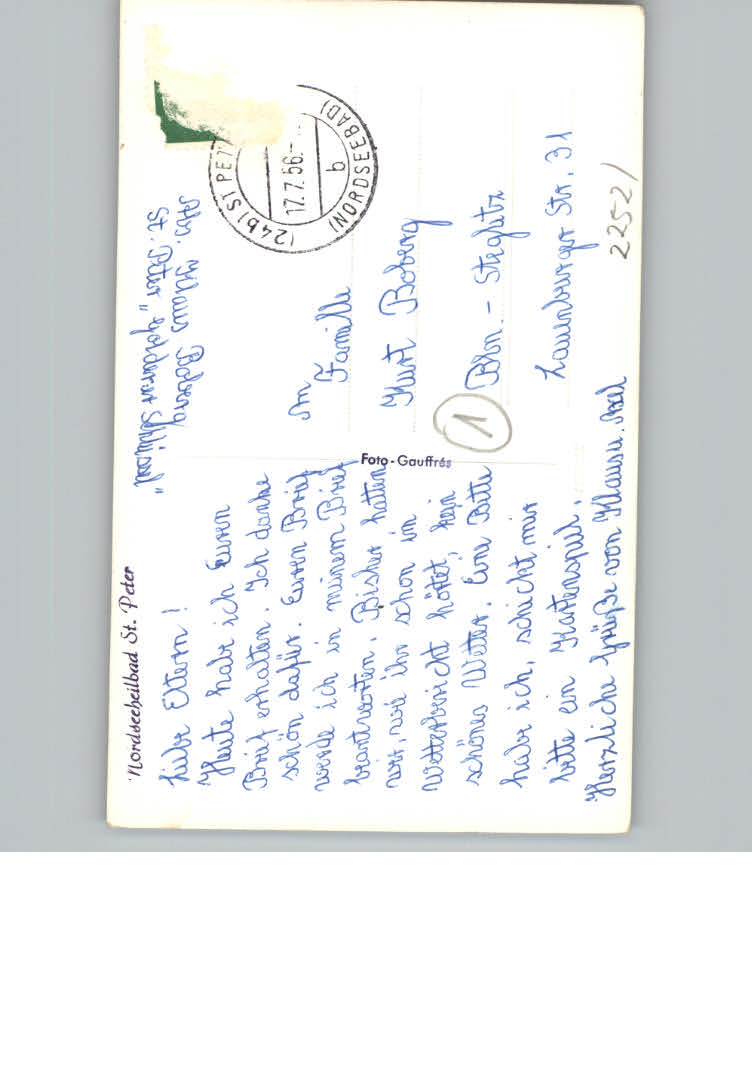 Nordseeheilbad St. Peter
Liebe Eltern!
Heute habe ich Euren
Brief erhalten. Ich danke
schön dafür. Euren Brief
werde ich in meinem Brief
beantworten. Bisher hatten
wir, wie ihr schon im
Wetterbericht hörtet, kein
schönes Wetter. Eine Bitte
habe ich, schickt mir
bitte ein Kartenspiel.
Herzliche Grüße von Klaus u. Axel
Foto-Gauffrés
Abs. Klaus Boberg
St. Peter
(24b) ST PET
17.7.56.-
b
(NORDSEEBAD)
An
Familie
Kurt Boberg
1
Bln. - Steglitz
Lauenburger Str. 31
2252/